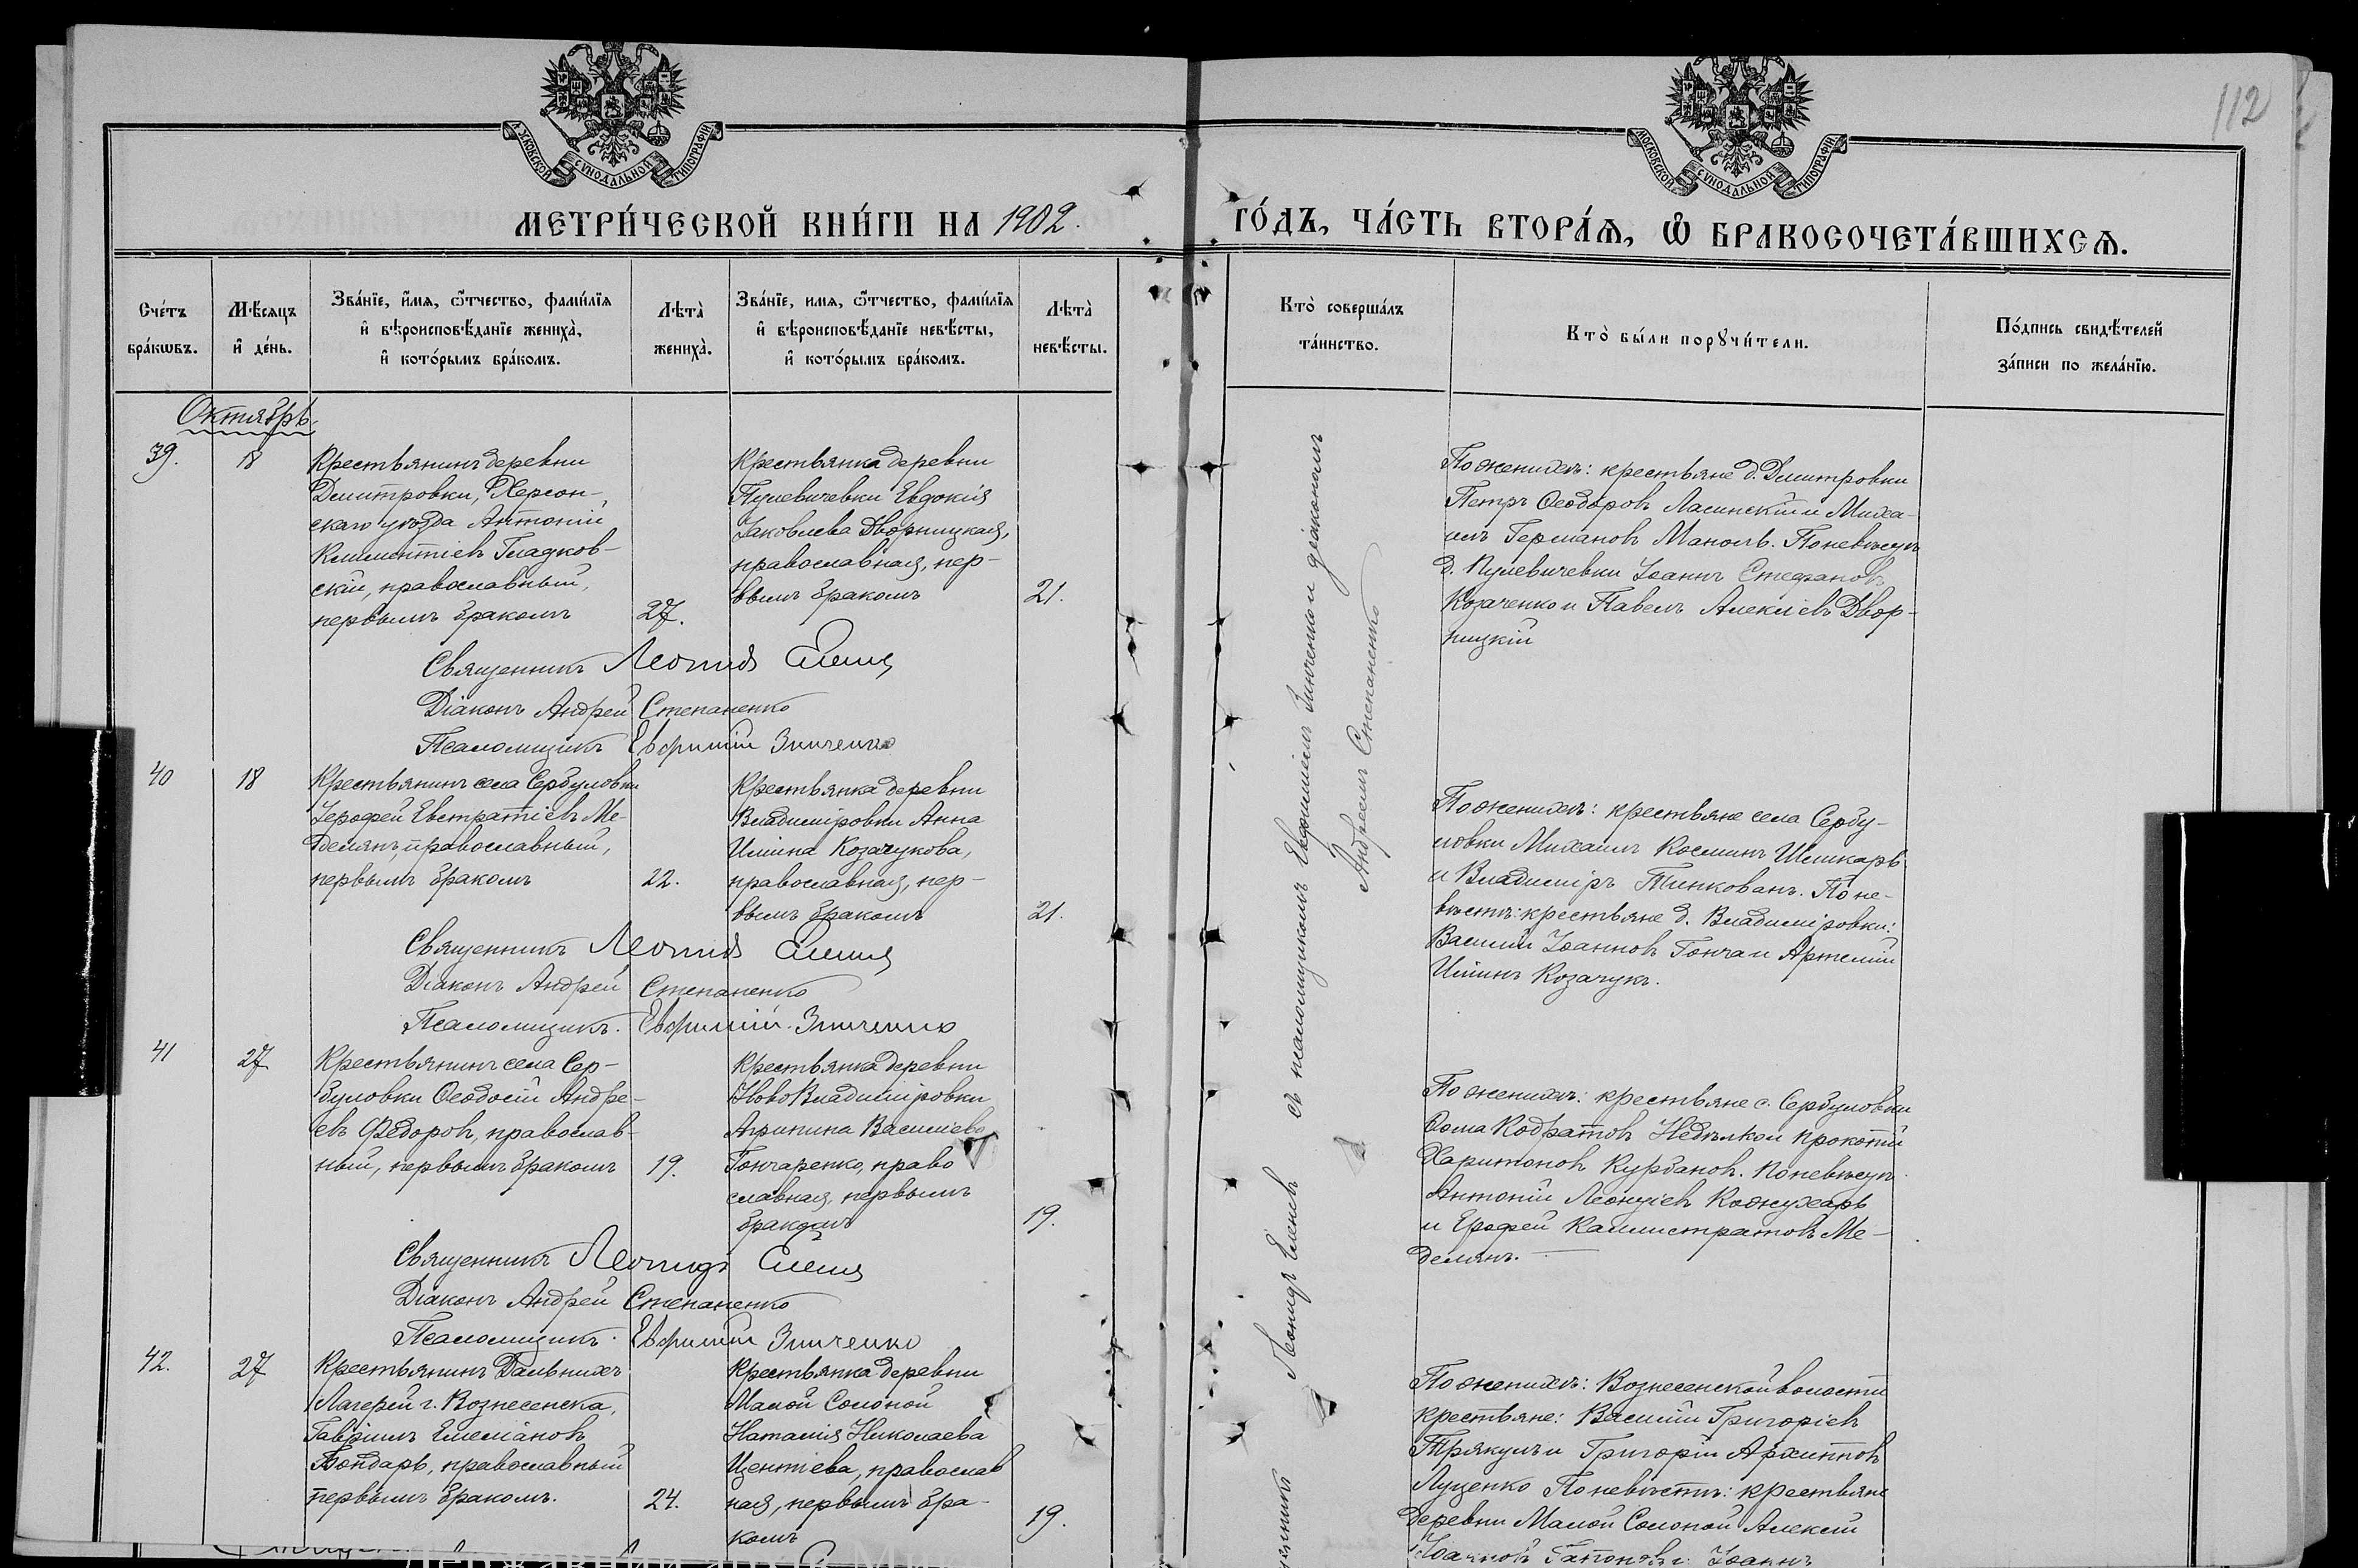 112
МОСКОВСКОЙ СѴНОДАЛЬНОЙ ТИПОГРАФІИ
МЕТРИ́ЧЕСКОЙ КНИ́ГИ НА 1902.
ГО́ДЪ, ЧА́СТЬ ВТОРА́Я, Ѽ БРАКОСОЧЕТА́ВШИХСЯ.
Сче́тъ
бра́кѡвъ.
Мѣ́сяцъ
и҆ де́нь.
Зва́нїе, и҆́мя, ѻ҆́тчество, фами́лїя
и҆ вѣроисповѣ́данїе жениха̀,
и҆ кото́рымъ бра́комъ.
Лѣта̀
жениха̀.
Зва́нїе, имя, ѻ҆́тчество, фами́лїя
и҆ вѣроисповѣ́данїе невѣ́сты,
и҆ кото́рымъ бра́комъ.
Лѣта̀
невѣ́сты.
Кто̀ соверша́лъ
та́инство.
Кто̀ бы́ли порꙋчи́тели.
По́дпись свидѣ́телей
за́писи по жела́нїю.
Октябрь.
39.
18
Крестьянинъ деревни
Дмитровки, Херсон-
скаго уѣзда Антоній
Климентіевъ Гладков-
скій, православный,
первымъ бракомъ
27.
Крестьянка деревни
Пулевичевки Евдокія
Іаковлева Дворницкая,
православная, пер-
вымъ бракомъ
21.
По женихѣ: крестьяне д. Дмитровки
Петръ Ѳеодоровъ Ласинскій и Миха-
илъ Германовъ Маноль. По невѣстѣ
д. Пулевичевки Іоаннъ Стефановъ
Козаченко и Павелъ Алексіевъ Двор-
ницкій
Священникъ Леонидъ
Діаконъ Андрей Степаненко
Псаломщикъ Евфимій Зинченко
40
18
Крестьянинъ села Сербуловки
Іерофей Евстратіевъ Ме-
делянъ, православный,
первымъ бракомъ
22.
Крестьянка деревни
Владиміровки Анна
Иліина Козачукова,
православная, пер-
вымъ бракомъ
21.
По женихѣ: крестьяне села Сербу-
ловки Михаилъ Косминъ Шишкарь
и Владиміръ Тинкованъ. По не-
вѣстѣ: крестьяне д. Владиміровки:
Василій Іоанновъ Гонча и Артемій
Иліинъ Козачукъ.
Священникъ Леонидъ
Діаконъ Андрей Степаненко
Псаломщикъ. Евфимій Зинченко
41
27
Крестьянинъ села Сер-
буловки Ѳеодосій Андре-
евъ Ѳедоровъ, православ-
ный, первымъ бракомъ
19.
Крестьянка деревни
Ново Владиміровки
Агрипина Василіева
Гончаренко, право
славная, первымъ
бракомъ
19.
По женихѣ: крестьяне с. Сербуловки
Ѳома Кодратовъ Недѣлко и Прокопій
Харитоновъ Курбановъ. По невѣстѣ
Антоній Леонтіевъ Кожухарь
и Ерофей Каллистратовъ Ме-
делянъ.
Священникъ Леонидъ
Діаконъ Андрей Степаненко
Псаломщикъ. Евфимій Зинченко
42.
27
Крестьянинъ Дальнихъ
Лагерей г. Вознесенска,
Гавріилъ Емеліановъ
Бондарь, православный
первымъ бракомъ.
24.
Крестьянка деревни
Малой Солоной
Наталія Николаева
Центіева, православ
ная, первымъ бра-
комъ
19.
По женихѣ: Вознесенской волости
крестьяне: Василій Григоріевъ
Трякулъ и Григорій Архиповъ
Луценко По невѣстѣ: крестьяне
деревни Малой Солоной Алексій
Іоанновъ Іоаннъ
Леонидъ съ псаломщикомъ Евфиміемъ Зинченко и діакономъ
Андреемъ Степаненко